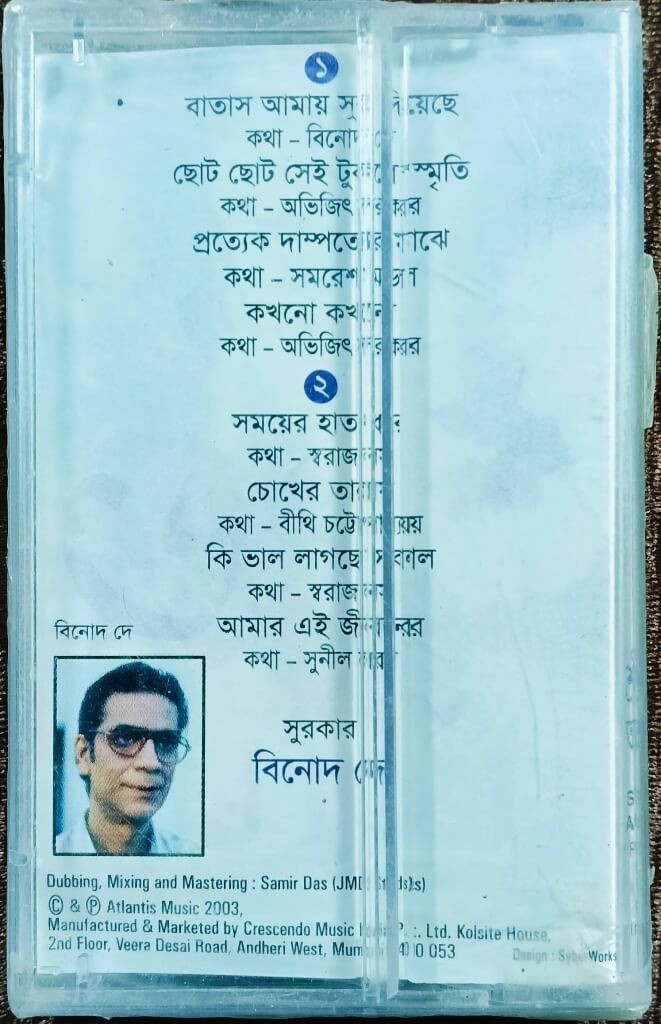 ১
বাতাস আমায় দিয়েছে
কথা – বিনোদ দে
ছোট ছোট সেই স্মৃতি
কথা – অভিজিৎ
প্রত্যেক দাম্পত্যের মাঝে
কথা – সমরেশ
কখনো কখনো
কথা – অভিজিৎ
২
সময়ের হাত
কথা – স্বরাজ
চোখের
কথা – বীথি চট্টোপাধ্যায়
কি ভাল লাগছে সকাল
কথা – স্বরাজ
আমার এই জীবনের
কথা – সুনীল
বিনোদ দে
সুরকার
বিনোদ দে
Dubbing, Mixing and Mastering : Samir Das
© & ℗ Atlantis Music 2003,
Manufactured & Marketed by Crescendo Music Ltd. Kolsite House,
2nd Floor, Veera Desai Road, Andheri West, Mumbai 400 053
Design : SyberWorks